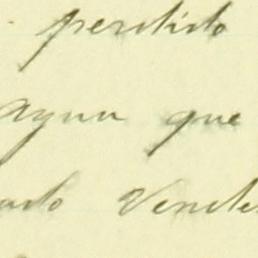 perdido
agua que
ado Vende